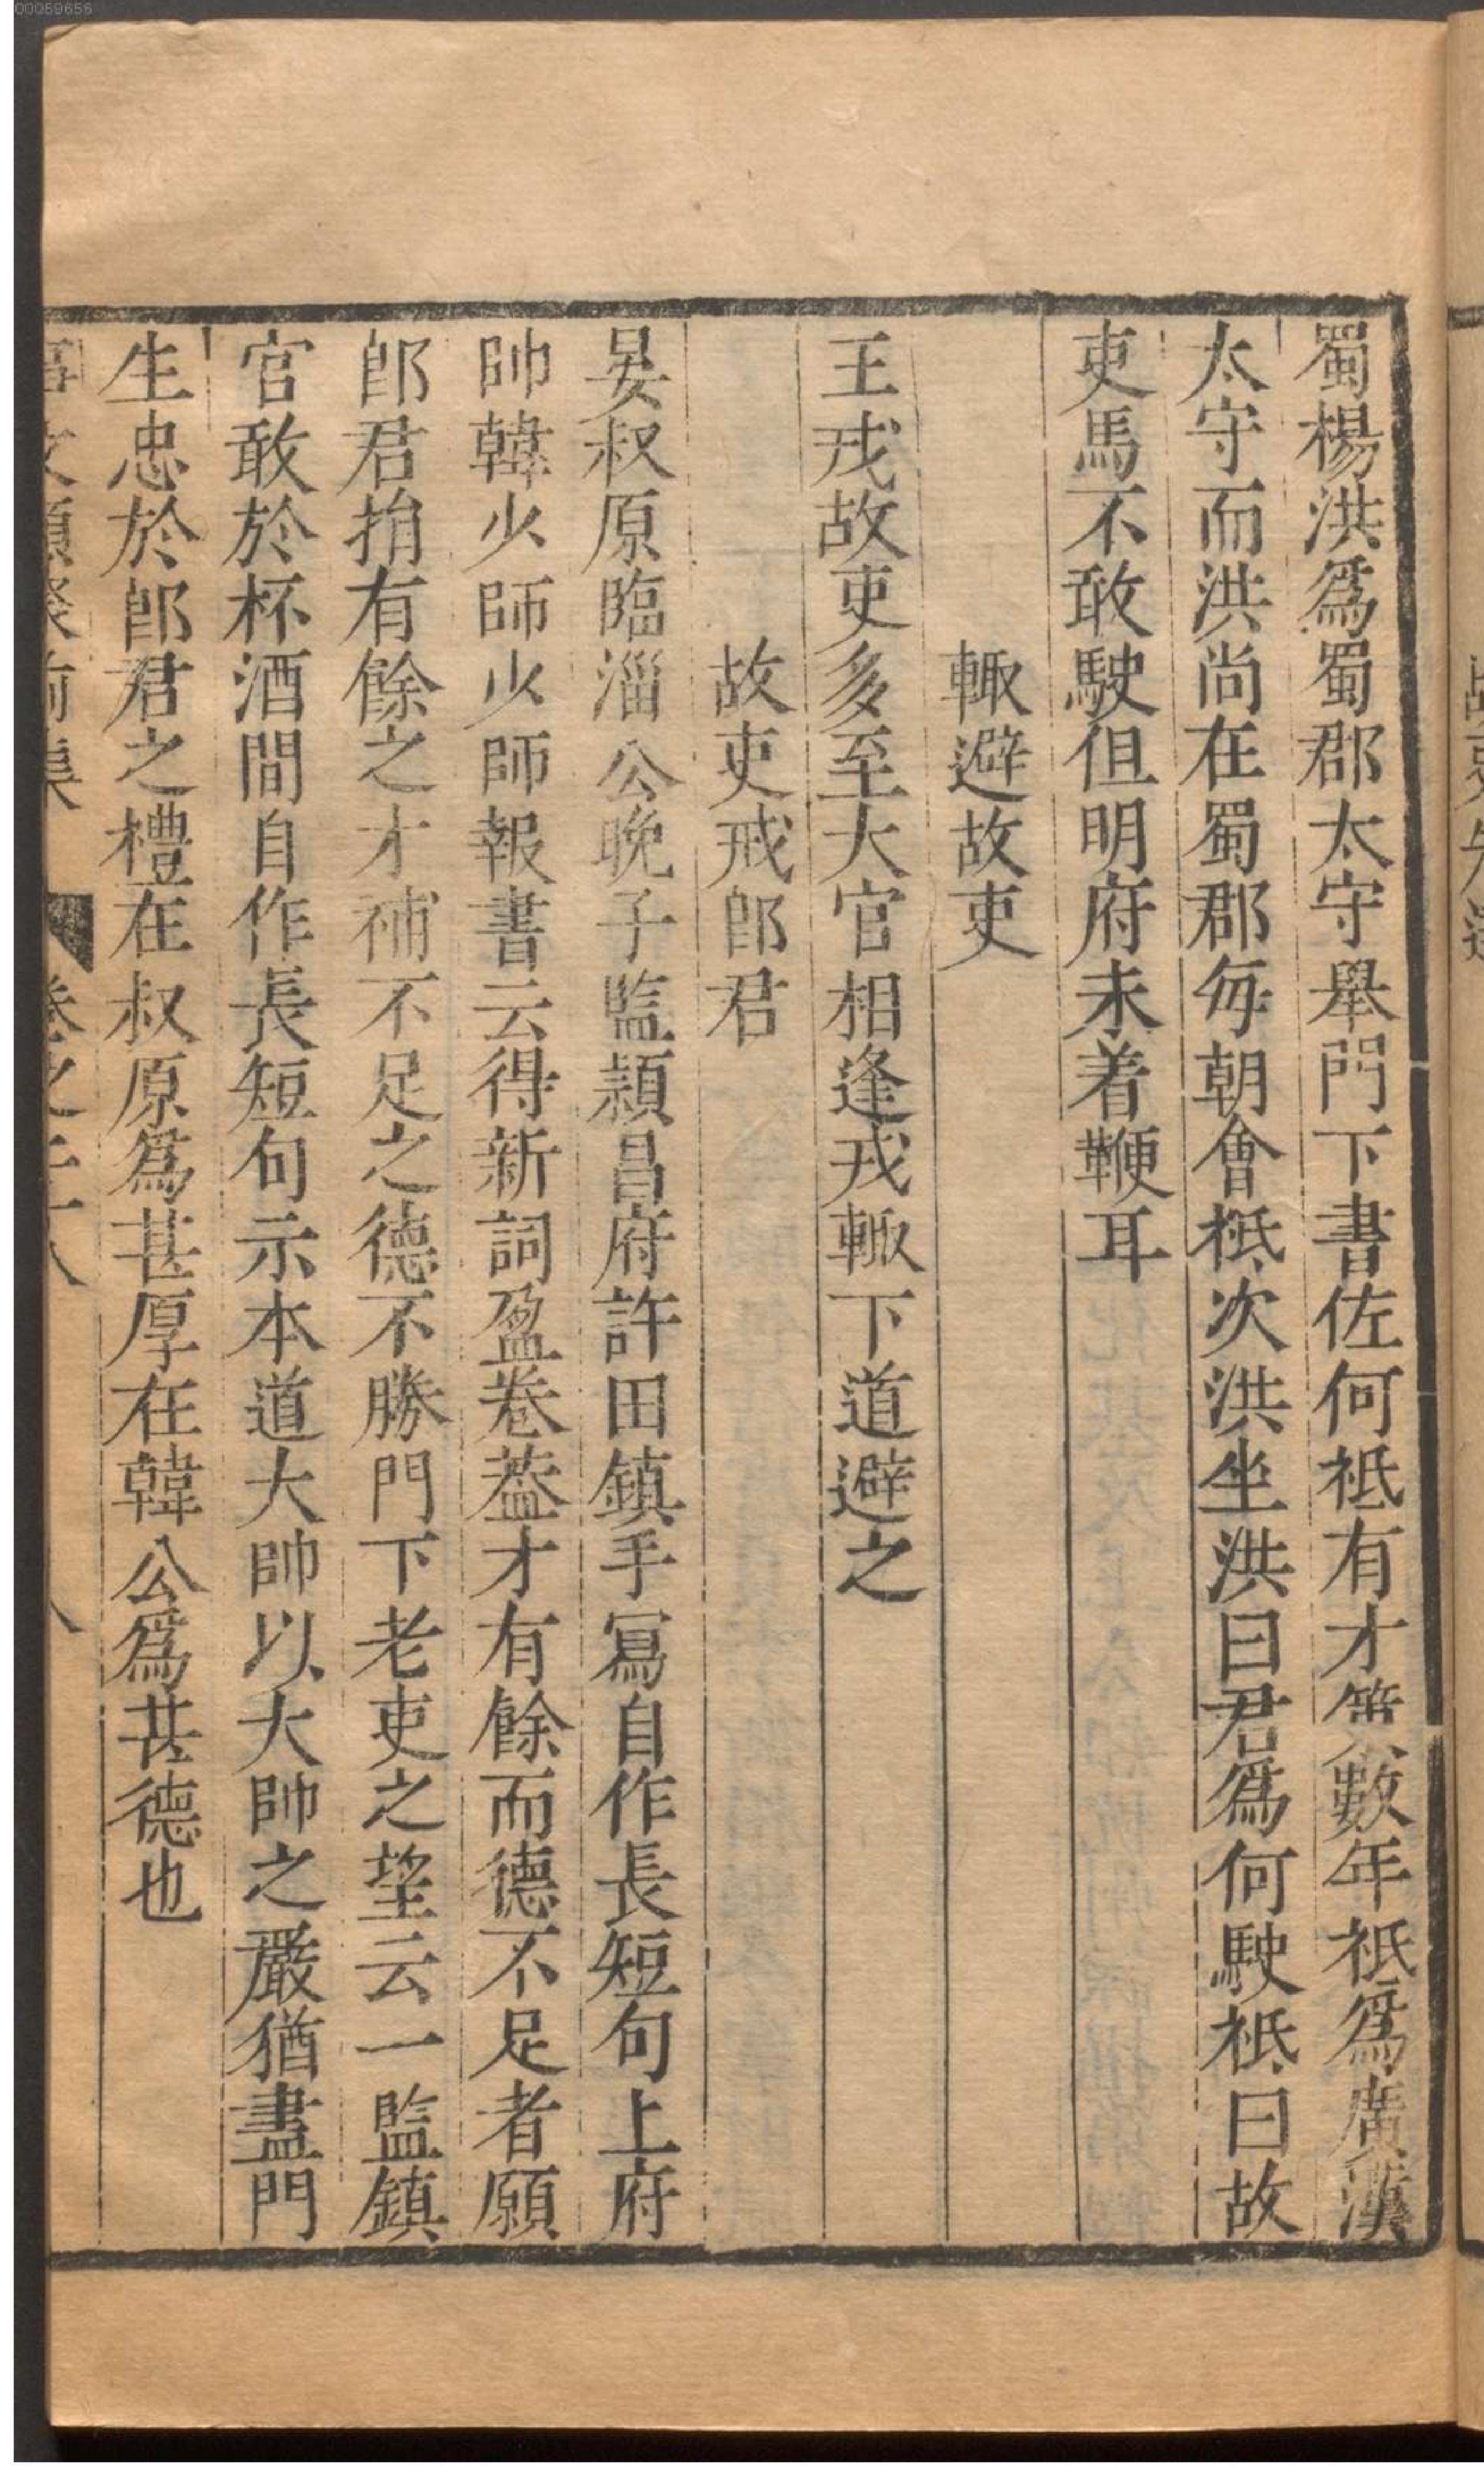 00059656
蜀楊洪爲蜀郡太守舉門下書佐何祗有才策數年祗爲廣漢
太守而洪尚在蜀郡每朝會祗次洪坐洪曰君爲何駛祗曰故
吏馬不敢駛但明府未着鞭耳
輙避故吏
王戎故吏多至大官相逢戎輙下道避之
故吏戒郎君
晏叔原臨淄公晚子監頴昌府許田鎮手寫自作長短句上府
帥韓少師少師報書云得新詞盈卷葢才有餘而德不足者願
郎君捐有餘之才補不足之德不勝門下老吏之望云一監鎮
官敢於杯酒間自作長短句示本道大帥以大帥之嚴猶盡門
生忠於郎君之禮在叔原爲甚厚在韓公爲甚德也